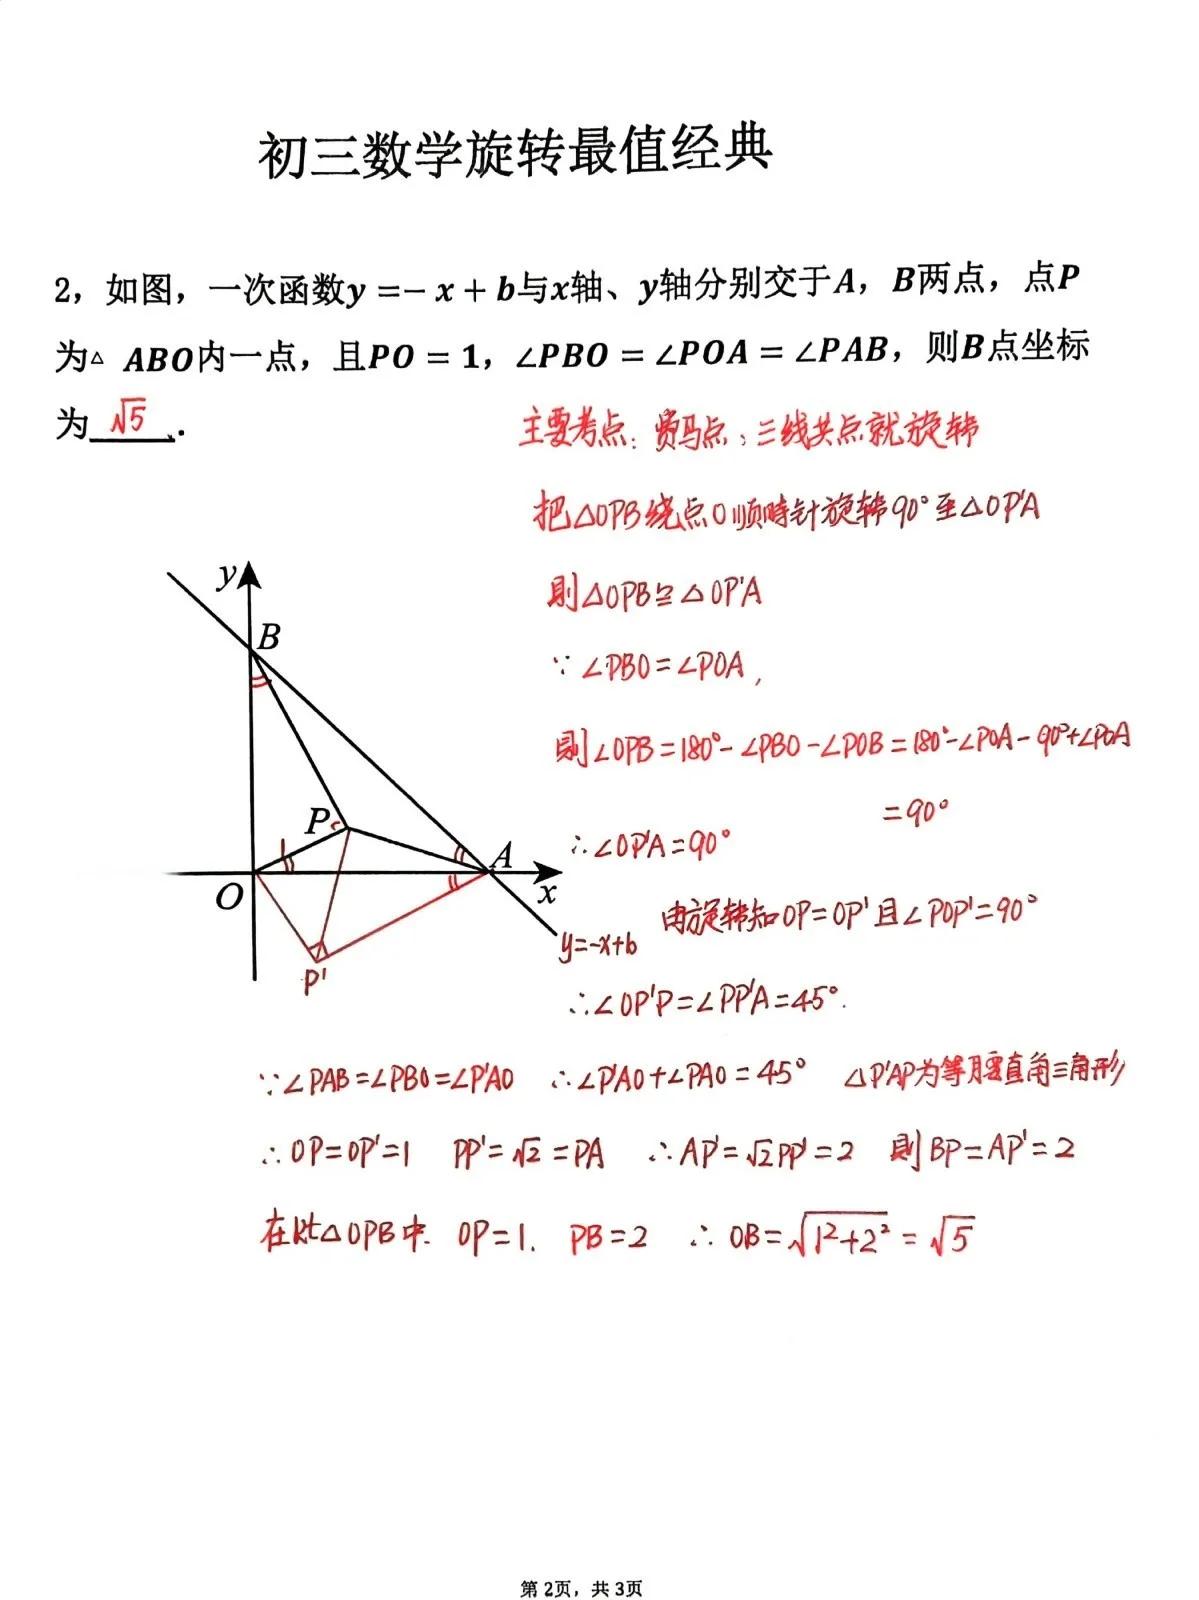 初三数学旋转最值经典
2，如图，一次函数y=-x+b与x轴、y轴分别交于A，B两点，点P
为△ ABO内一点，且PO=1，∠PBO=∠POA=∠PAB，则B点坐标
为 √5 .
主要考点：费马点；三线共点就旋转
把△OPB绕点O顺時针旋转90°至△OP'A
則△OPB≌△OP'A
∵∠PBO=∠POA，
則∠OPB=180°-∠PBO-∠POB=180°-∠POA-90°+∠POA
=90°
∴∠OP'A=90°
由旋转知OP=OP'且∠POP'=90°
∴∠OP'P=∠PP'A=45°.
∵∠PAB=∠PBO=∠P'AO ∴∠P'AO+∠PAO=45° △P'AP为等腰直角三角形
∴OP=OP'=1 PP'=√2=PA ∴AP'=√2PP'=2 則BP=AP'=2
在Rt△OPB中. OP=1. PB=2 ∴OB=√(1²+2²)=√5
y
B
P
1
A
O
x
y=-x+b
P'
第 2页，共 3页